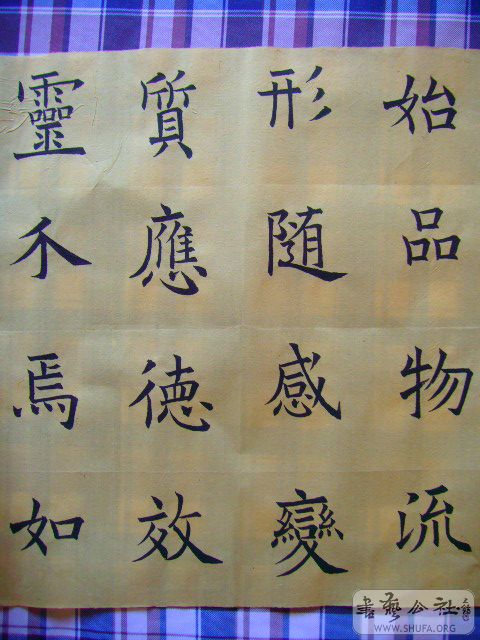 始品物流
形随感變
質應德效
靈不焉如
書藝公社
WWW.SHUFA.ORG